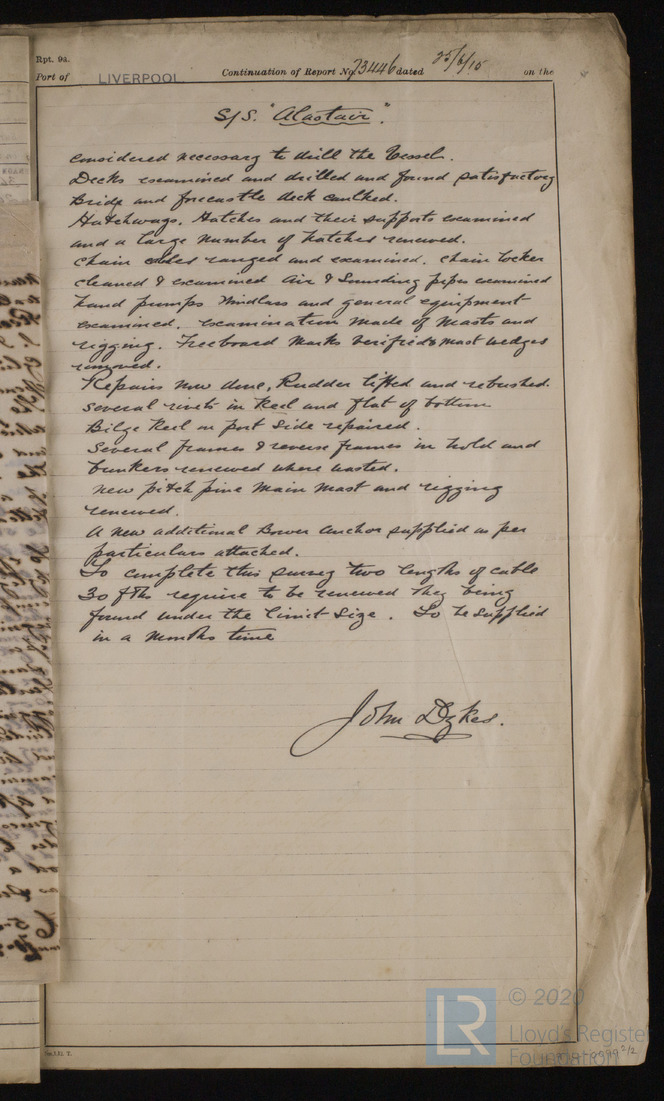 Rpt. 9a.
Port of LIVERPOOL Continuation of Report No 73446 dated 25/6/15 on the
S/S. "Alastair".
considered necessary to drill the Vessel.
Decks examined and drilled and found satisfactory
Bridge and forecastle deck caulked.
Hatchways. Hatches and their supports examined
and a large number of hatches renewed.
Chain cables ranged and examined. Chain locker
cleaned & examined Air & Sounding pipes examined
hand pumps Windlass and general equipment
examined. examination made of Masts and
rigging. Freeboard Marks verified & mast wedges
removed.
Repairs now done, Rudder lifted and rebushed.
Several rivets in keel and flat of bottom
Bilge keel on port side repaired.
Several frames & reverse frames in hold and
bunkers renewed where wasted.
New pitch pine Main Mast and rigging
renewed.
A new additional Bower Anchor supplied as per
particulars attached.
To complete this survey two lengths of cable
30 fths require to be renewed they being
found under the limit size. To be supplied
in a months time
John Dykes.
LR
© 2020
Lloyd's Register
Foundation